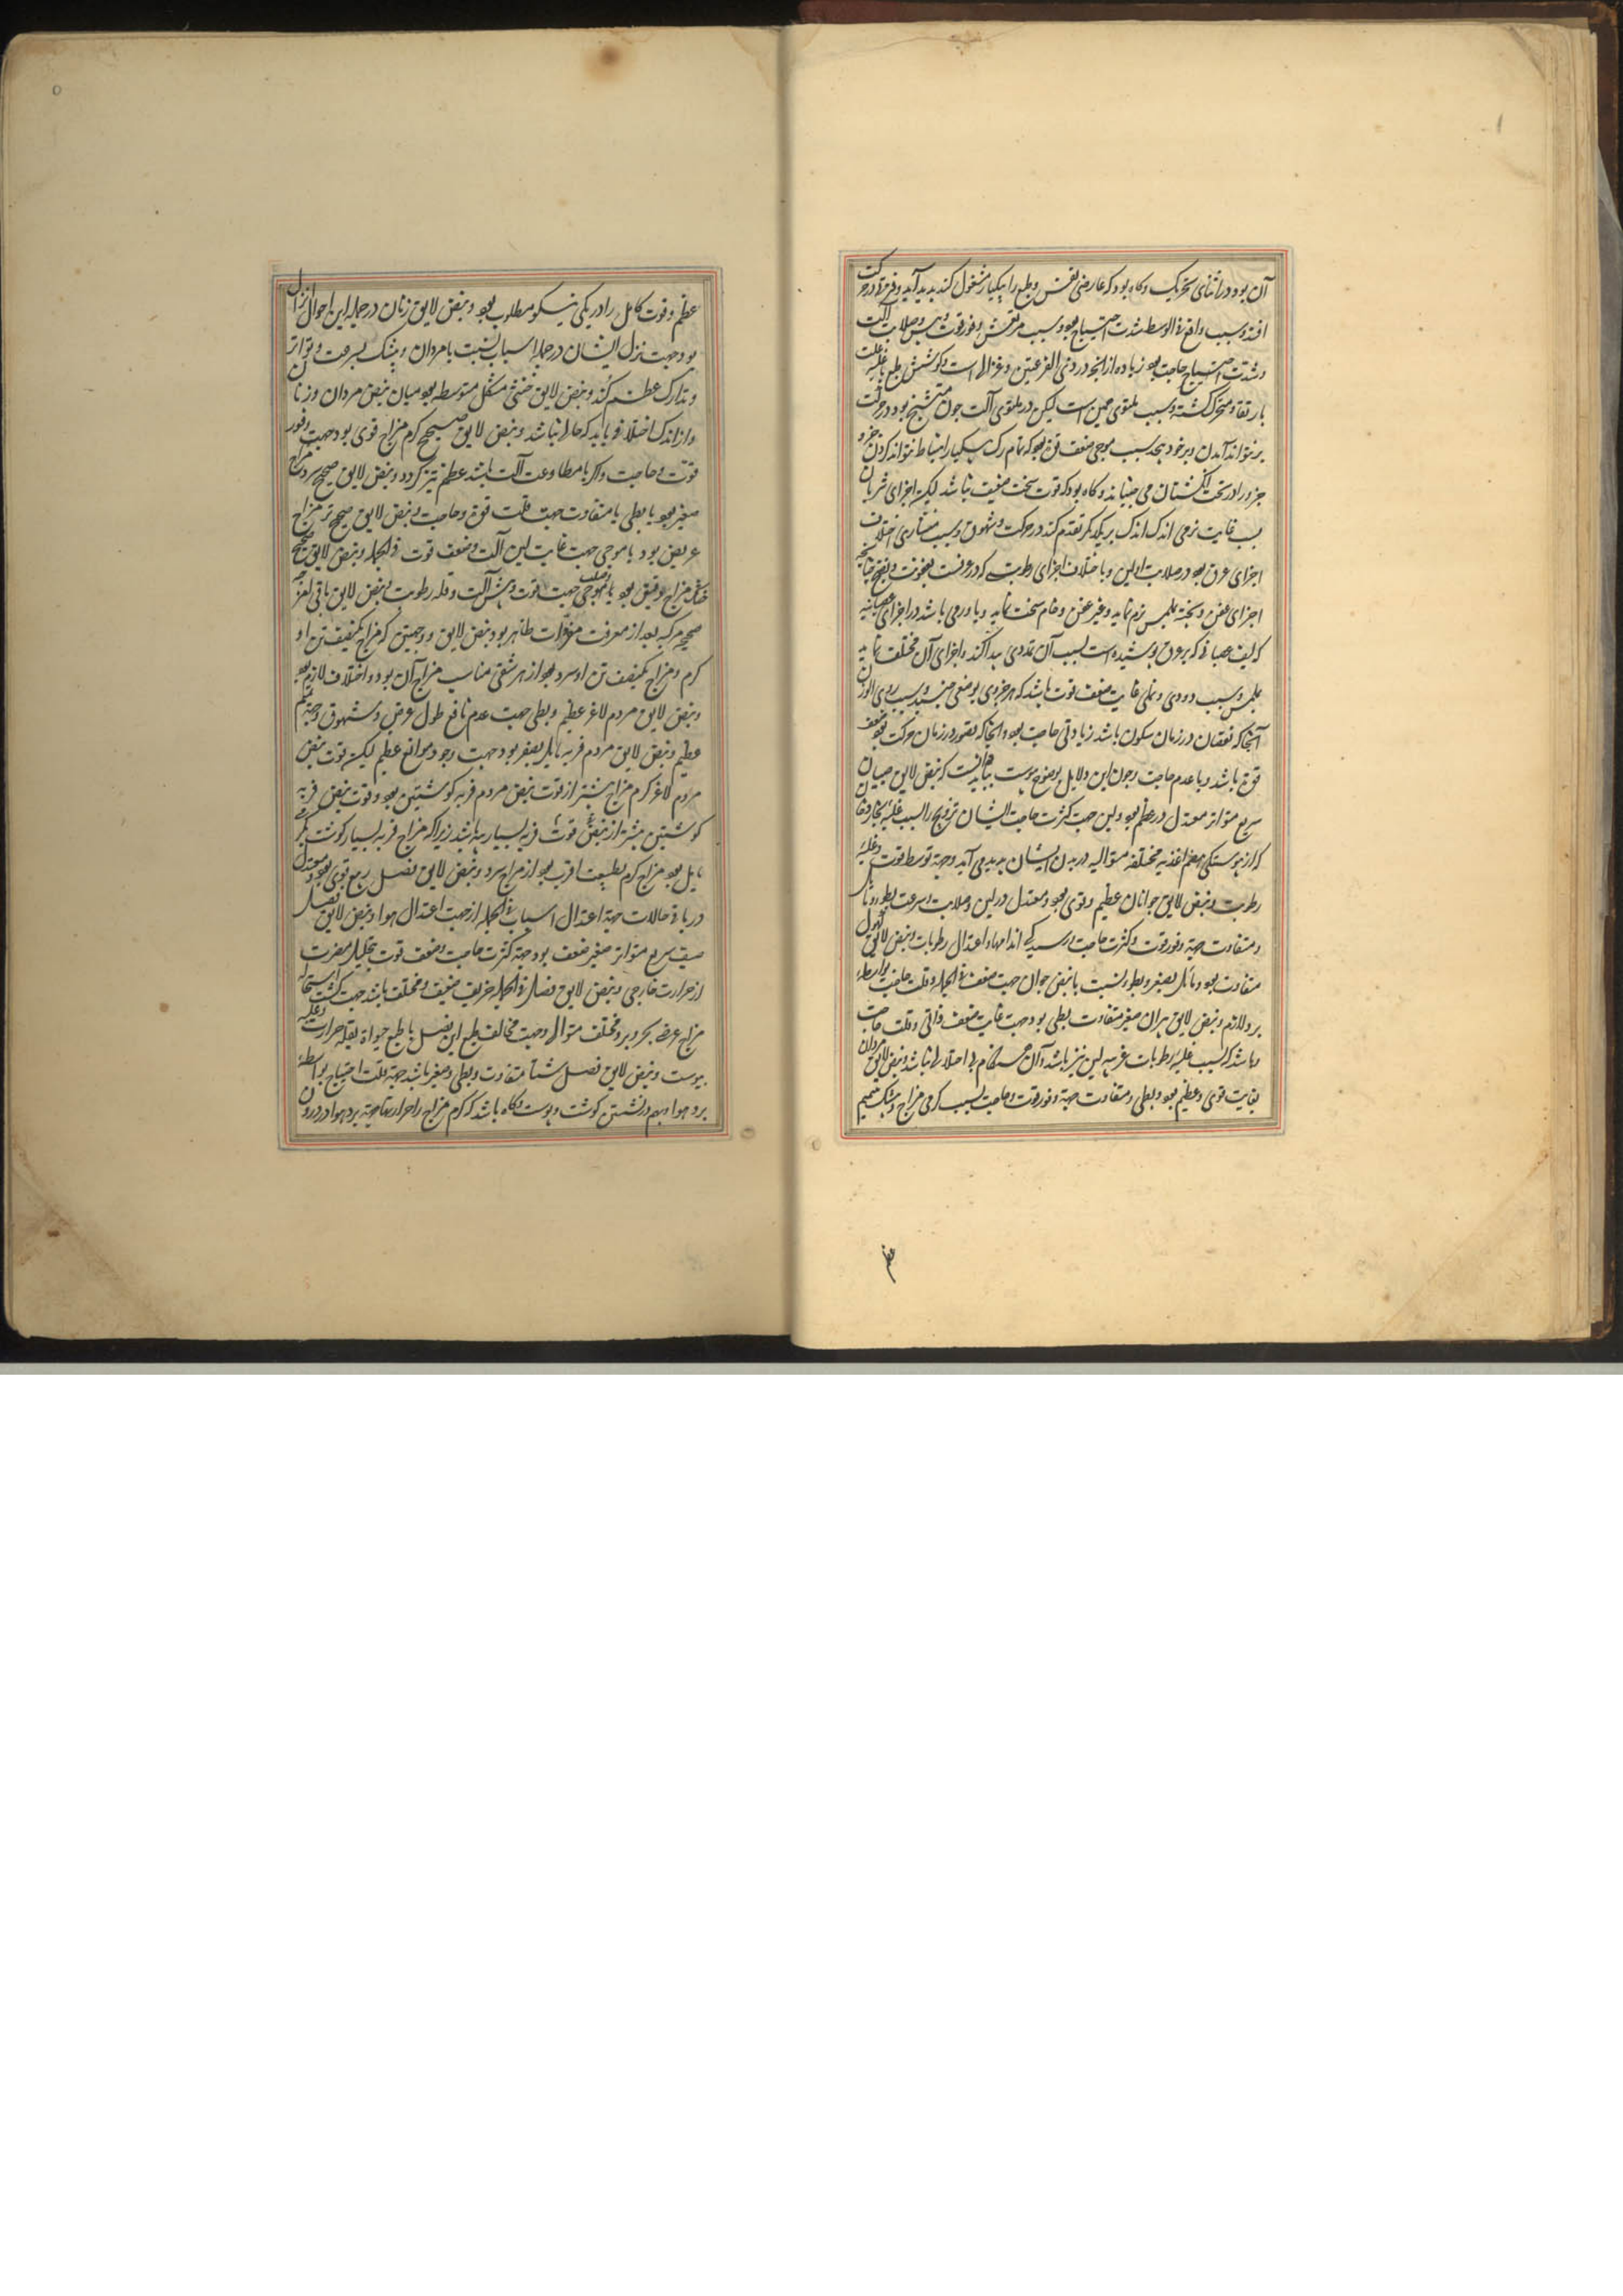 آن بود در اثنای تحریک و کاه بود که عارضی نفس و طبع را بیکبار مشغول کند پدید آید و فتره در حرکت
افتد و سبب واقع فی الوسط شدت احتیاج بود و سبب مرتعش وفور قوت و یبس و صلابت آلت
و شدت احتیاج حاجت بود زیاده از انچه در ذی القرعتین و غزالی است و کوشش طبع با غلبه علت
بارتقا و متحرک کشته و سبب ملتوی همین است لیکن در ملتوی آلت چون متشنج بود در حرکت
بر نتواند آمدن و بر خود پیچد سبب موجی ضعف قوة بود که تمام رک بیکبار انبساط نتواند کردن جزو
جزو را در تحت انکشتان می جنباند و کاه بود که قوت سخت ضعیف نباشد لیکن اجزای شریان
بسبب غایت نرمی اندک اندک بر یکدیکر تقدم کند در حرکت و شهوق و سبب منشاری اختلاف
اجزای عرق بود در صلابت و لین و یا اختلاف اجزای رطوبتی که دروست بعفونت و نضج چنانچه
اجزای عفن و پخته بلمس نرم نماید و غیر عفن و خام سخت نماید و یا ورمی باشد در اجزای عصبانیه
که لیف عصبانی که بر عرق پوشیده است بسبب آن تمددی پیدا کند و اجزای آن مختلف نماید
بلمس و سبب دودی و نملی غایت ضعف قوت باشد که هر جزوی بوضعی جنبد و سبب ردی الوزن
آنجا که نقصان در زمان سکون باشد زیادتی حاجت بود و انجا که قصور در زمان حرکت بود ضعف
قوة باشد و یا عدم حاجت و چون این دلایل بوضوح پیوست بباید دانست که نبض لایق صبیان
سریع متواتر معتدل در عظم بود و لین جهت کثرت حاجت ایشان ترویج را بسبب غلبه بخار دخانی
که از پیوستکی هضم اغذیه مختلفه متوالیه در بدن ایشان پدید می آید و جهة توسط قوت و غلبه
رطوبت و نبض لایق جوانان عظیم و قوی بود و معتدل در لین و صلابت و سرعت و بطو و مایل
و متفاوت جهة وفور قوت و کثرت حاجت و رسیدکی اندامها و اعتدال رطوبات و نبض لایق کهول
متفاوت بود و مایل بصغر و بطو نسبت با نبض جوان جهت ضعف فی الجمله و قلت حاجت بواسطه
برد لازم و نبض لایق پیران صغیر متفاوت بطی بود جهت غایت ضعف ذاتی و قلت حاجت
و باشد که بسبب غلبه رطوبات غریبه لین نیز باشد و آن هنکام بی اختلافی نباشد و نبض لایق مردان
بغایت قوی و عظیم بود و بطی و متفاوت جهة وفور قوت و حاجت بسبب کرمی مزاج و بیشک تتمیم
عظم
عظم و قوت کامل را در یکی نیکو مطلوب بود و نبض لایق زنان در جمله این احوال انزل
بود جهت نزل ایشان در جمله اسباب نسبت با مردان و بیشک بسرعت و تواتر
و تدارک عظم کند و نبض لایق خنثی مشکل متوسطه بود میان نبض مردان و زنان
و از اندک اختلافی باید که خالی نباشد و نبض لایق صحیح کرم مزاج قوی بود جهت وفور
قوت و حاجت و اکر با مطاوعت آلت باشد عظم نیز کردد و نبض لایق صحیح سرد مزاج
صغیر بود یا بطی یا متفاوت جهت قلت قوة و حاجت و نبض لایق صحیح تر مزاج
عریض بود یا موجی جهت غایت لین آلت و ضعف قوت فی الجمله و نبض لایق صحیح
خشک مزاج دقیق بود یا موجی جهت قوت و یبس آلت و قله رطوبت و نبض لایق باقی امزجه
صحیحه مرکبه بعد از معرفت مفردات ظاهر بود و نبض لایق دو جهتین که مزاج یکنصف تن او
کرم و مزاج یکنصف تن او سرد بود از هر شقی مناسب مزاج آن بود و اختلاف لازم بود
و نبض لایق مردم لاغر عظیم و بطی جهت عدم مانع طول و عرض و شهوق و جهة تتمم
عظم و نبض لایق مردم فربه مایل بصغر بود جهت وجود موانع عظم لیکن قوت نبض
مردم لاغر کرم مزاج بیشتر از قوت نبض مردم فربه کوشتین بود و قوت نبض فربه
کوشتین بیشتر از نبض قوت فربه بسیار پیه باشد زیرا که مزاج فربه بسیار کوشت بکرمی
مایل بود مزاج کرم بطبیعت اقرب بود از مزاج سرد و نبض لایق فصل ربیع قوی بود و معتدل
در باقی حالات جهة اعتدال اسباب فی الجمله از جهت اعتدال هوا و نبض لایق فصل
صیف سریع متواتر صغیر ضعف بود جهة کثرت حاجت و ضعف قوت بتحلیل مضرت
از حرارت خارجی و نبض لایق فصل فی الجمله خریف ضعیف و مختلف باشد جهت کثرت استحاله
مزاج عرضی بحر و برد مختلف متوالی و جهت مخالفت طبع این فصل با طبع حیواة بقله حرارت و غلبه
یبوست و نبض لایق فصل شتا متفاوت و بطی و صغیر باشد جهة قلت احتیاج بواسطه
برد هوا و بهم در نشستن کوشت و پوست و کاه باشد که کرم مزاج را حرارتها جهة برد هوا در درون